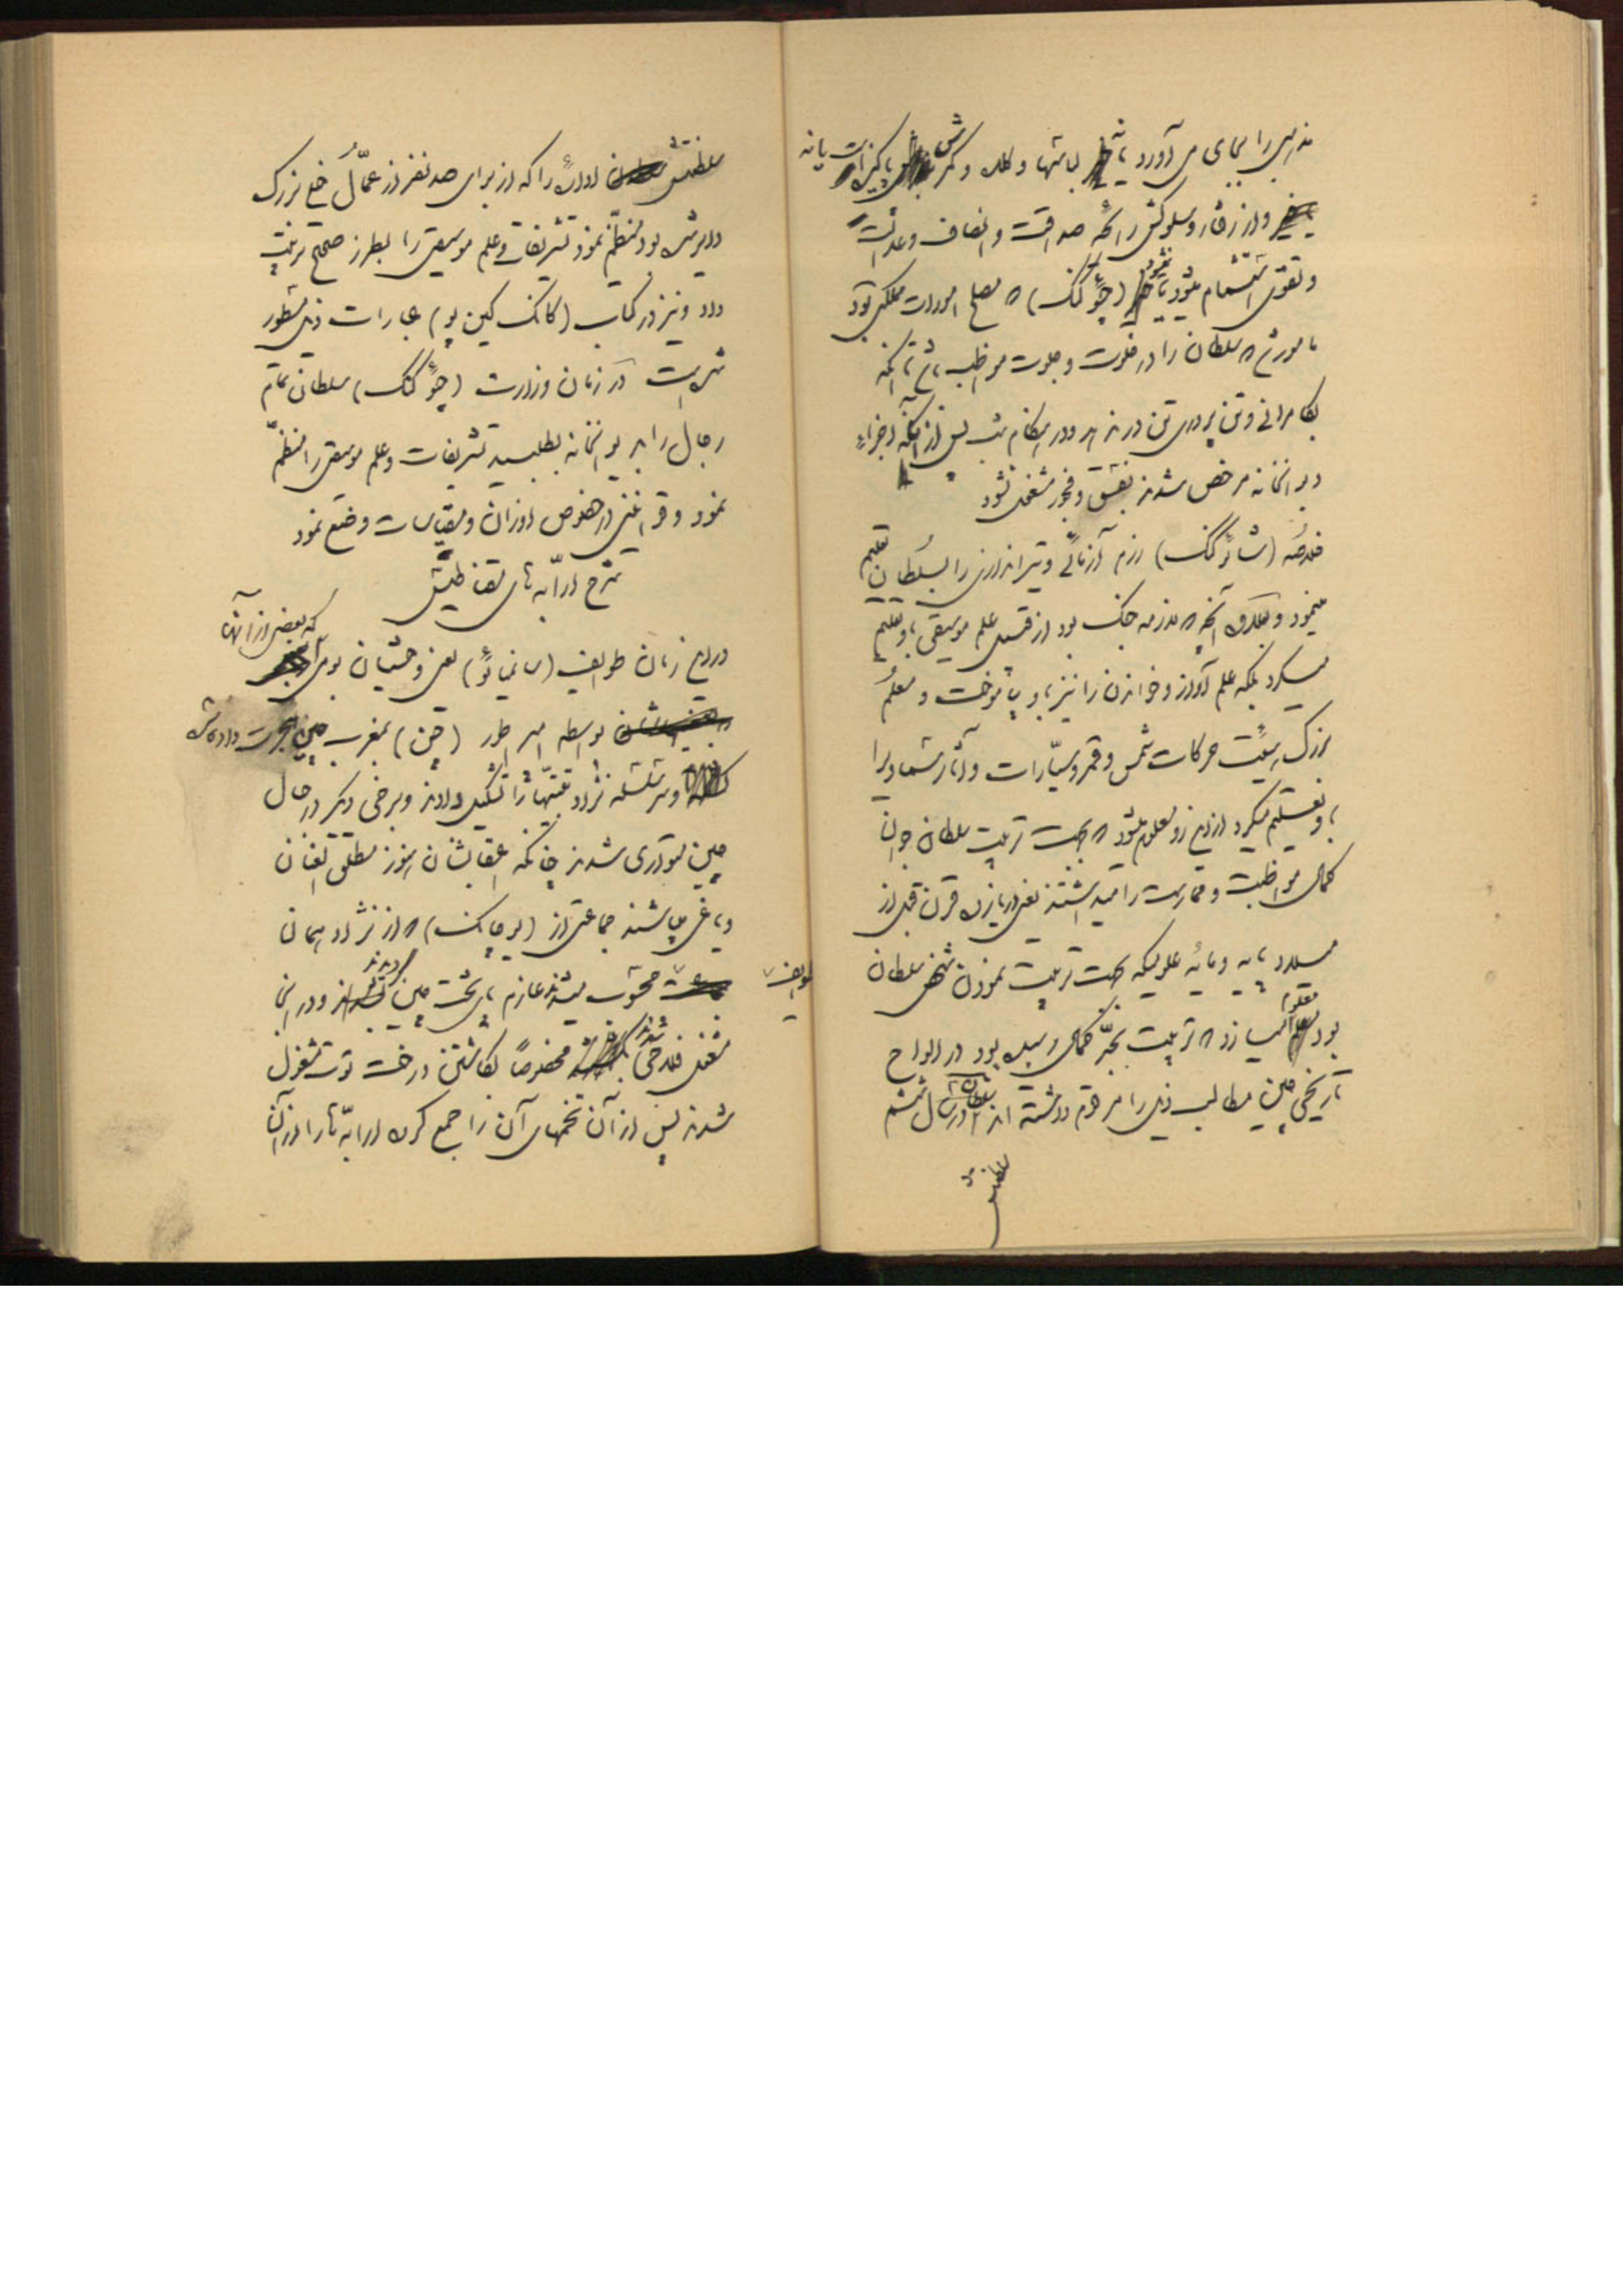 مذهبی را بجای می آورد یا نه لباسها و کلاه و کمرش پاکیزه است یا نه
و از رفتار و سلوکش رائحه صداقت و انصاف و عدالت
و تقوی استشمام میشود یا نمیشود (چو کنک) که مصلح امورات مملکتی بود
مامور شد که سلطان را در خلوت و جلوت مواظب باشد تا آنکه
بکامرانی و تن پروری تن در ندهد و در هنگام شب پس از آنکه اجزاء
دیوانخانه مرخص شدند بفسق و فجور مشغول نشود
خلاصه (شاو کنک) رزم آزمائی و تیراندازی را بسلطان تعلیم
مینمود و بعلاوه آنچه که لازمه جنک بود از قبیل علم موسیقی باو تعلیم
میکرد بلکه علم آواز و خواندن را نیز باو بیاموخت و معلم
بزرک هیئت حرکات شمس و قمر و سیارات و آثار سماویرا
باو تعلیم میکرد از این رو معلوم میشود که بجهت تربیت سلطان جوان
کمال مواظبت و ممارست را میداشتند یعنی در یازده قرن قبل از
میلاد پایه و مایه علومیکه بجهت تربیت نمودن شخص سلطان
بود معلوم میسازد که تربیت بچه کمال رسیده بود در الواح
تاریخی چین مطالب ذیل را مرقوم داشته اند سلطان در سال ششم
سلطنتش
سلطنتش اداره را که از برای صد نفر از عمال خیلی بزرک
دایرشده بود منظم نمود تشریفات و علم موسیقی را بطرز صحیح ترتیب
داد و نیز در کتاب (کانک کین یو) عبارات ذیل مسطور
شده است در زمان وزارت (چو کنک) سلطان تمام
رجال را بدیوانخانه بطلبید تشریفات و علم موسیقی را منظم
نمود و قوانینی در خصوص اوزان و مقیاسات وضع نمود
شرح ارابه های مغناطیسی
در این زمان طوایف (سانمیائو) یعنی وحشیان بومی که بعضی از آنها
بواسطه امپراطور (چن) بمغرب چین هجرت داده شده
و سرسلسله نژاد تبتیها را تشکیل دادند و برخی دیگر در جبال
چین متواری شدند چنانکه اعقابشان هنوز مطلق العنان
و یاغی میباشند جماعتی از (یوچانک) که از نژاد همان
طوایف محسوب میشدند عازم پایتخت چین گردیدند و در آنجا
مشغول فلاحی شدند مخصوصاً بکاشتن درخت توت مشغول
شدند پس از آن تخمهای آن را جمع کرده ارابه ها را از آن